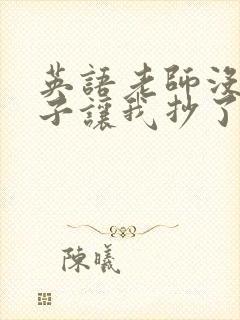 英語老師沒
子讓我抄了
陳曦